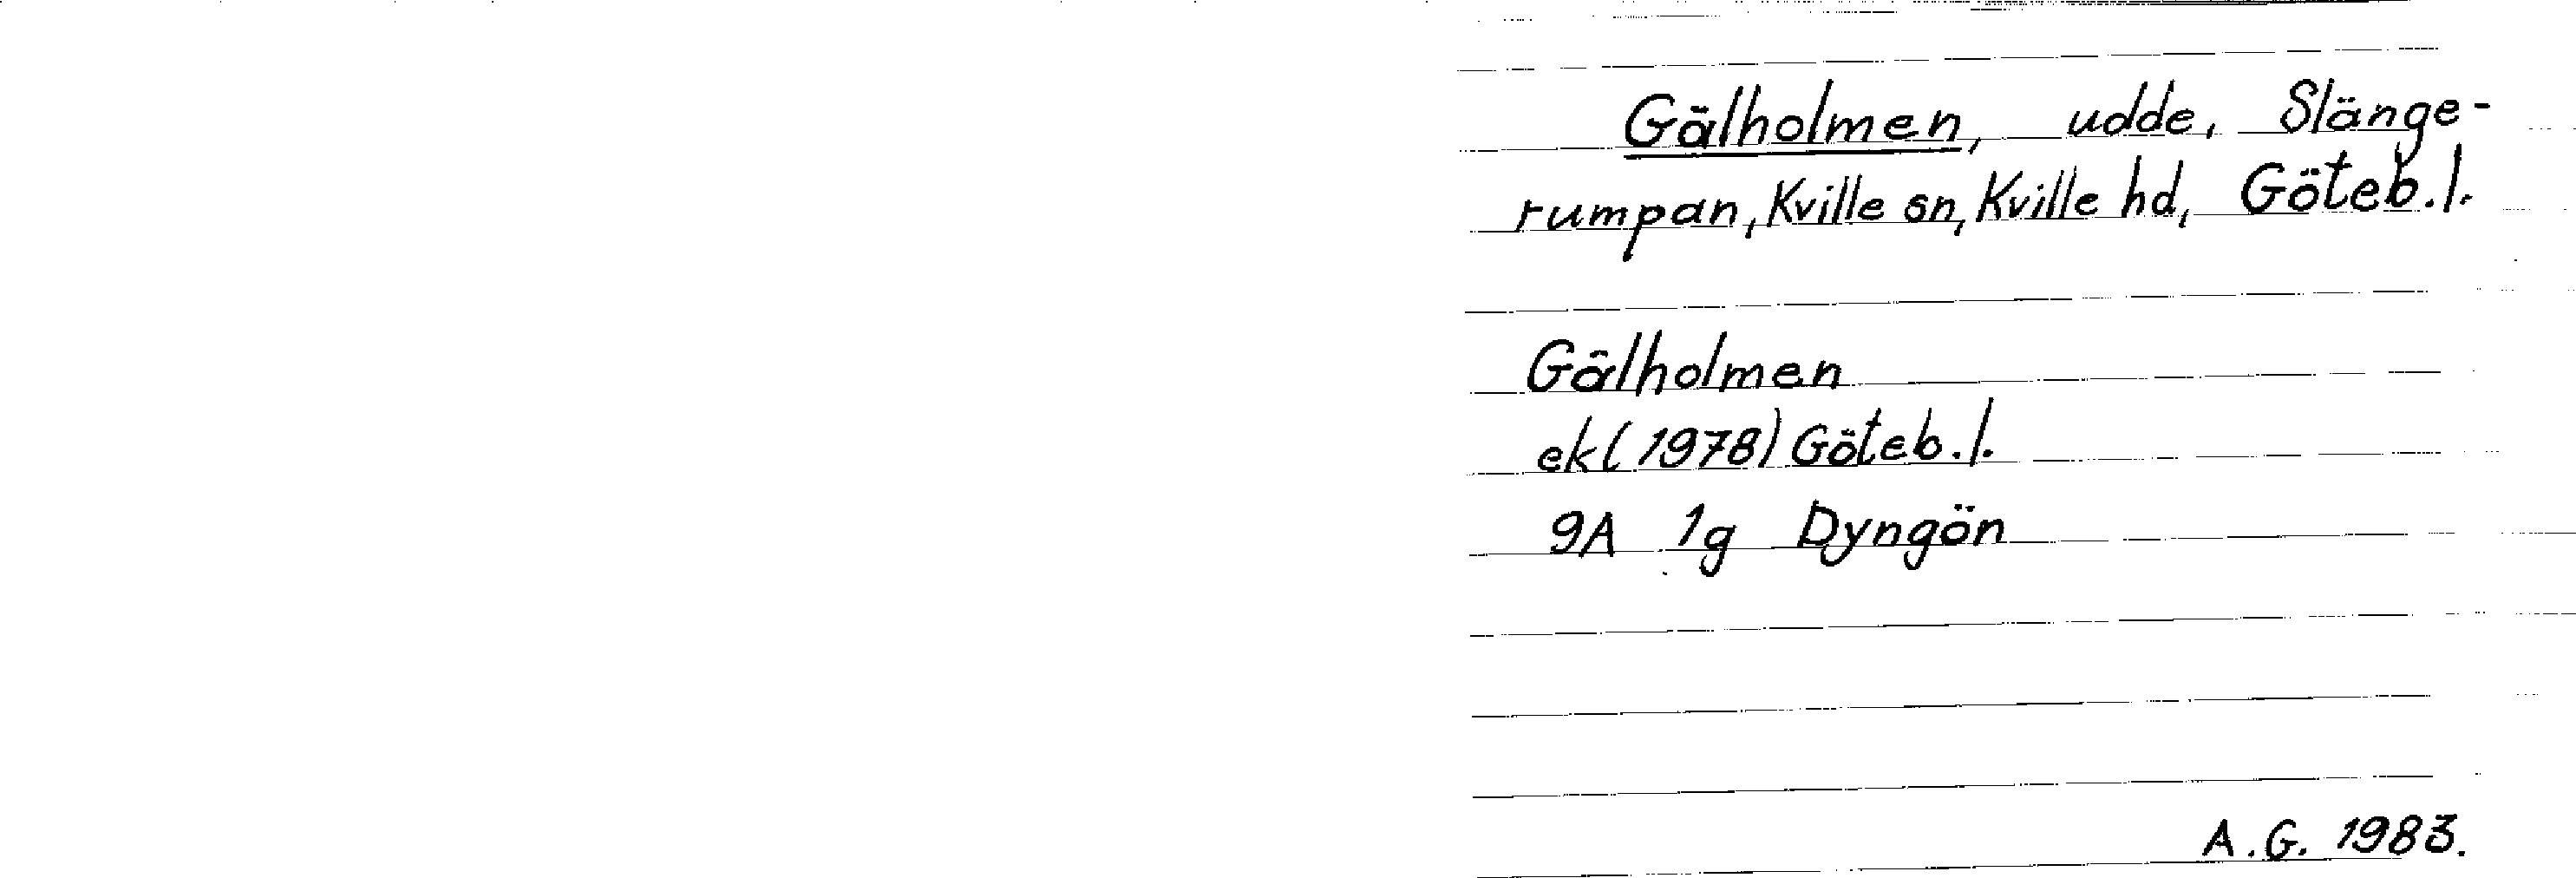 Gälholmen, udde, Slänge-
rumpan, Kville sn, Kville hd, Göteb.l.
Gälholmen
ekl (1978) Göteb.l.
9A 1g Dyngön
A.G. 1983.